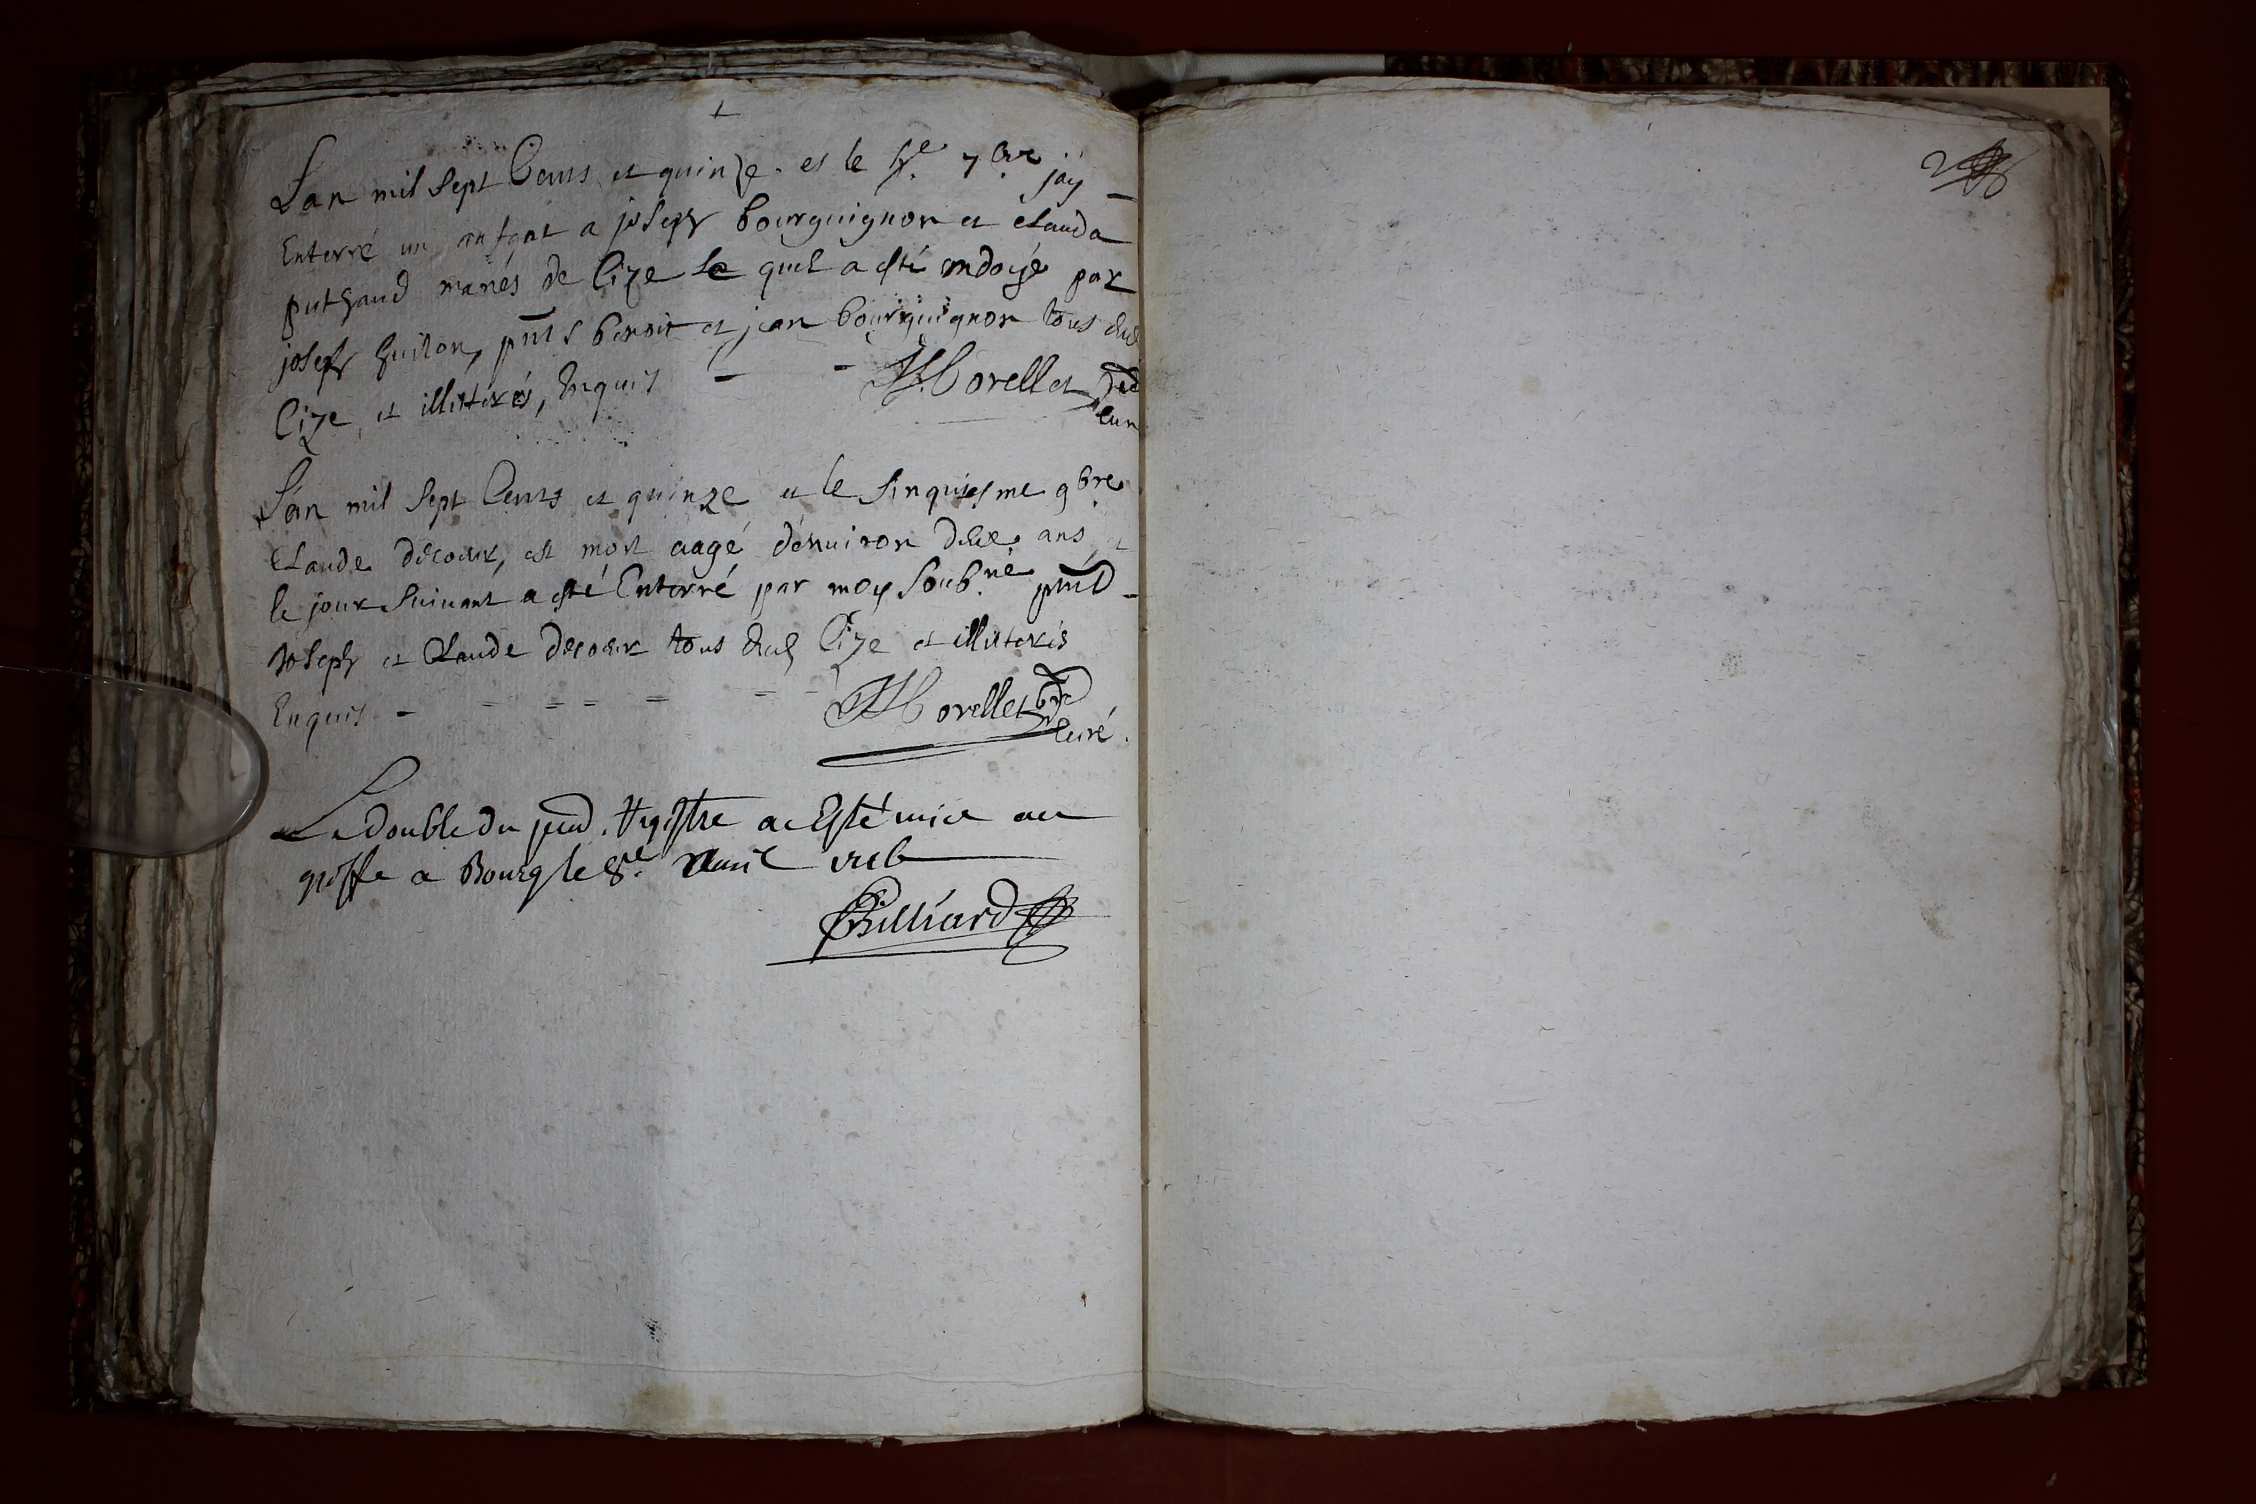 Lan mil sept Cents et quinze. et le 7bre jáy
Enterré un anfant a joseph bourguignon et Clauda
puthaud mariés de Cize le quel a esté ondoyé par
joseph guiton, pnts benoit et jean bourguignon tous dud
Cize, et illittérés, Enquis - - Morellet
L'an mil sept Cents et quinze et le sinquiesme 9bre
Claude decoeur, est mort aagé d'enuiron deux ans, et
le jour suivant a esté Enterré par moy soubné pnts
Joseph et Claude decoeur tous dud Cize et illiterés
Enquis - = = = = = - Morellet
curé.
Le double du pnd. Registre a Esté mis au
greffe a Bourg le 8e. Auril
Billiard